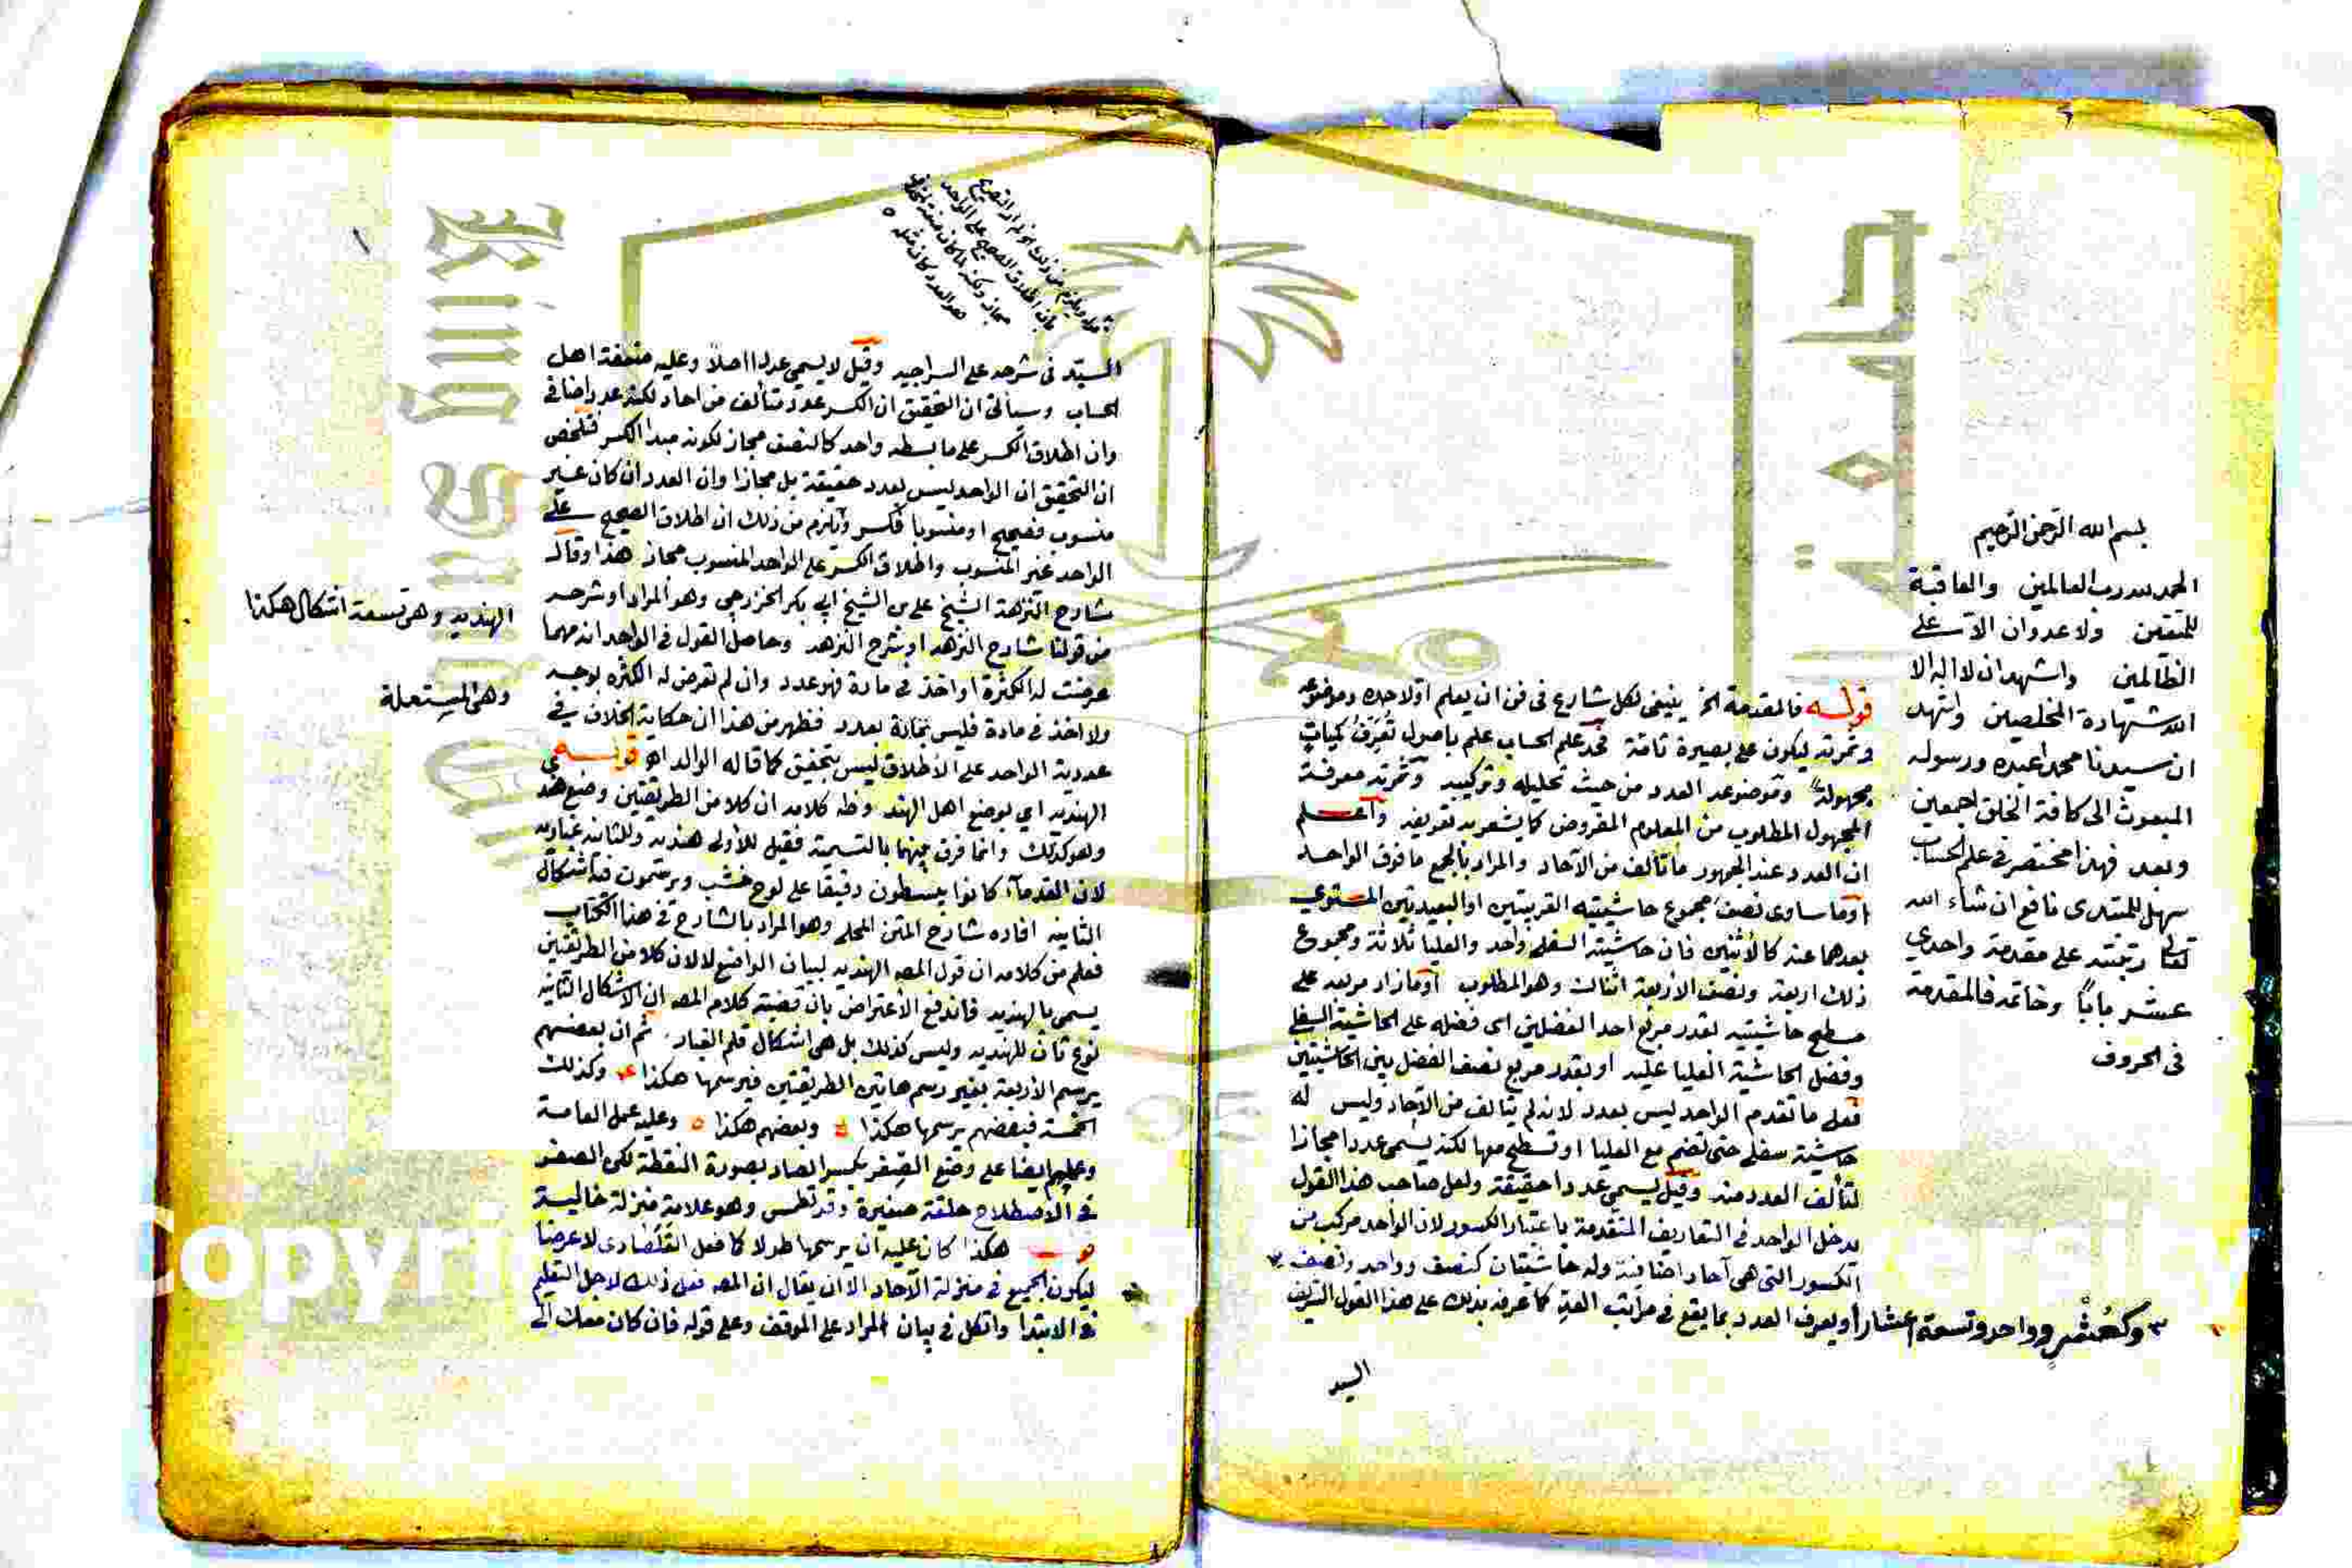 بسم الله الرحمن الرحيم
الحمد لله رب العالمين والعاقبة
للمتقين ولا عدوان الا على
الظالمين واشهد ان لا اله الا
الله شهادة المخلصين واشهد
ان سيدنا محمدا عبده ورسوله
المبعوث الى كافة الخلق اجمعين
وبعد فهذا مختصر في علم الحساب
سهل للمبتدى نافع ان شاء الله
تعالى رتبته على مقدمة واحدى
عشر بابًا وخاتمه فالمقدمة
فى الحروف
قوله فالمقدمة الخ ينبغى لكل شارع فى فن ان يعلم اولا حده وموضوعه
وثمرته ليكون على بصيرة تامة فحد علم الحساب علم باصول تعرف كميات
مجهولة وموضوعه العدد من حيث تحليله وتركيبه وثمرته معرفة
المجهول المطلوب من المعلوم المفروض كما يشعر به تعريفه واعلم
ان العدد عند الجمهور ما تألف من الآحاد والمراد بالجمع ما فوق الواحد
او ما ساوى نصف مجموع حاشيتيه القريبتين او البعيدتين المستوي
بعدهما عنه كالاثنين فان حاشيته السفلى واحد والعليا ثلاثة ومجموع
ذلك اربعة ونصف الاربعة اثنان وهو المطلوب او ما زاد مربعه على
مسطح حاشيتيه بقدر مربع احد الفضلين اى فضله على الحاشية السفلى
وفضل الحاشية العليا عليه او بقدر مربع نصف الفضل بين الحاشيتين
فعلى ما تقدم الواحد ليس بعدد لانه لم يتالف من الآحاد وليس له
حاشية سفلى حتى تضم مع العليا او تسطح معها لكنه يسمى عددا مجازا
لتألف العدد منه وقيل يسمى عددا حقيقة ولعل صاحب هذا القول
يدخل الواحد فى التعاريف المتقدمة باعتبار الكسور لان الواحد مركب من
الكسور التى هى آحاد اضافية وله حاشيتان كنصف وواحد ونصف ٣
او يعرف العدد بما يقع فى مراتب العد كما عرفه بذلك على هذا القول الشريف
٣ وكعُشْرٍ وواحد وتسعة اعشار
السيد
السيّد فى شرحه على السراجيه وقيل لا يسمى عددا اصلا وعليه اهل
الحساب وسيأتى ان التحقيق ان الكسر عدد متألف من احاد لكنه عدد اضافى
وان اطلاق الكسر على ما بسطه واحد كالنصف مجاز لكونه مبدا الكسر فتلخص
ان التحقيق ان الواحد ليس بعدد حقيقة بل مجازا وان العدد ان كان غير
منسوب فصحيح او منسوبا فكسر ويلزم من ذلك ان اطلاق الصحيح على
الواحد غير المنسوب واطلاق الكسر على الواحد المنسوب مجاز هذا وقال
شارح النزهة الشيخ على بن الشيخ ابى بكر الخزرجي وهو المراد او شرحه
من قولنا شارح النزهه او شرح النزهه وحاصل القول فى الواحد انه مهما
عرضت له الكثرة او اخذ فى مادة فهو عدد وان لم تعرض له الكثره بوجه
ولا اخذ فى مادة فليس بعدد فظهر من هذا ان حكاية الخلاف فى
عددية الواحد على الاطلاق ليس بتحقيق كما قاله الوالد اه قوله
الهنديه اي بوضع اهل الهند وظ كلامه ان كلا من الطريقتين وضع هند
وهو كذلك وانما فرق بينهما بالتسمية فقيل للأولى هندية وللثانيه غباريه
لان القدمآء كانوا يبسطون دقيقا على لوح خشب ويرسمون فيه اشكال
الثانيه افاده شارح المتن المحلى وهو المراد بالشارح فى هذا الكتاب
فعلم من كلامه ان قول المصـ الهنديه لبيان الواضع لا لان كلا من الطريقتين
يسمى بالهنديه فاندفع الاعتراض بان قضية كلام المصـ ان الاشكال الثانيه
نوع ثان للهنديه وليس كذلك بل هى اشكال قلم الغبار ثم ان بعضهم
يرسم الاربعة بغير رسم هاتين الطريقتين فيرسمها هكذا وكذلك
الخمسة فبعضهم يرسمها هكذا وبعضهم هكذا وعليه عمل العامة
وعملهم ايضا على وضع الصِفر بكسر الصاد بصورة النقطة لكن الصفر
فى الاصطلاح حلقة صغيرة وقد تطمس وهو علامة منزلة خالية
هكذا كان عليه ان يرسمها طولا كما فعل القلصادى لا عرضا
ليكون الجميع فى منزلة الآحاد الا ان يقال ان المصـ فعل ذلك لاجل التعليم
فى الابتدا واتكل فى بيان المراد على الموقف وعلى قوله فان كان معك الى
الهنديه وهى تسعة اشكال هكذا
وهى المستعملة